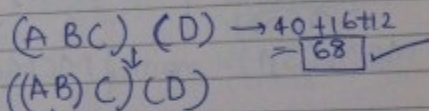 (A BC) (D) → 40+16+12
= 68 ✓
↓
((AB) C) (D)